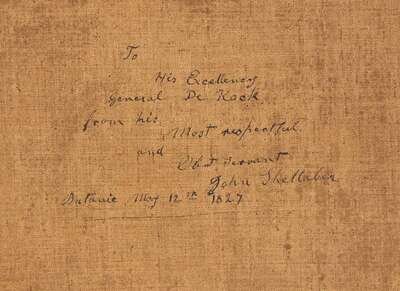 To
His Excellency
General De Kock
from his
Most respectful
and
Obt servant
John Shillaber
Batavia May 12th 1827